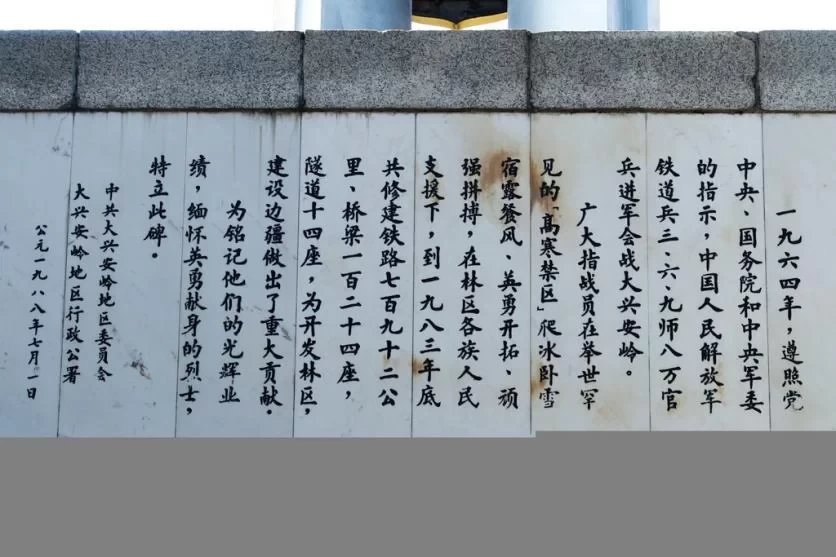 一九六四年，遵照党
中央、国务院和中央军委
的指示，中国人民解放军
铁道兵三、六、九师八万官
兵进军会战大兴安岭。
广大指战员在举世罕
见的「高寒禁区」爬冰卧雪
宿露餐风、英勇开拓、顽
强拼搏，在林区各族人民
支援下，到一九八三年底
共修建铁路七百九十二公
里、桥梁一百二十四座，
隧道十四座，为开发林区，
建设边疆做出了重大贡献。
为铭记他们的光辉业
绩，缅怀英勇献身的烈士，
特立此碑。
中共大兴安岭地区委员会
大兴安岭地区行政公署
公元一九八八年七月一日